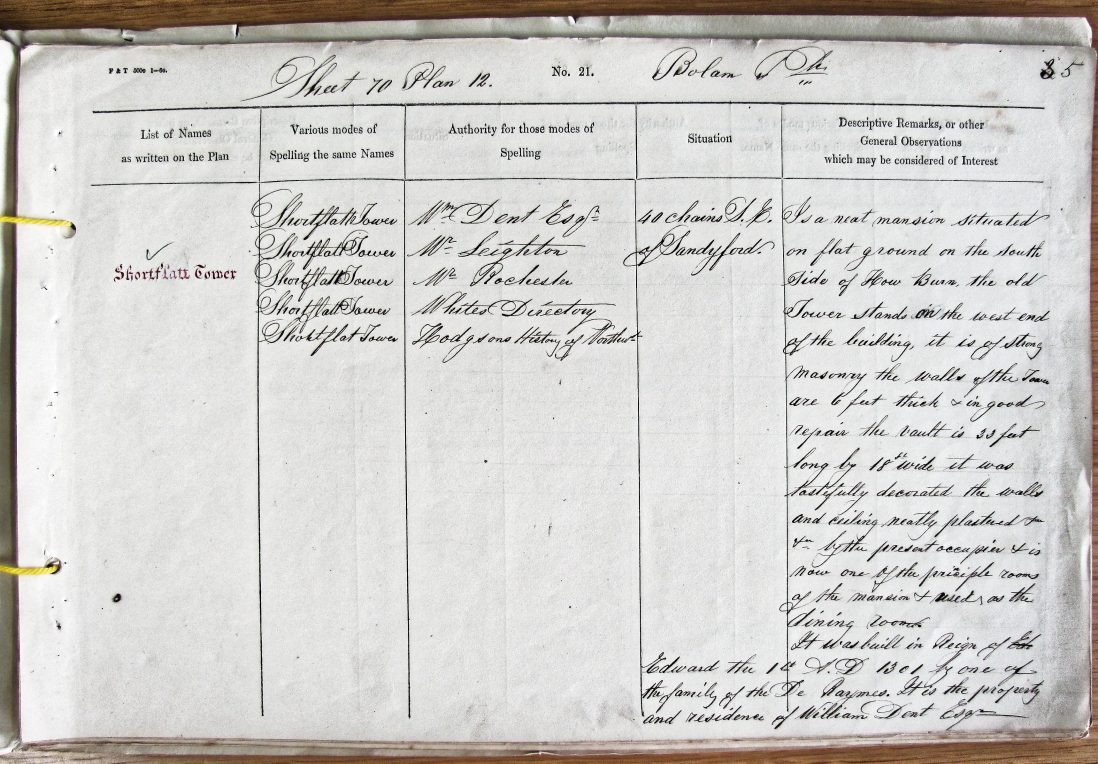 F & T 500c 1—60.
Sheet 70 Plan 12. No. 21. Bolam Ph. 5
List of Names
as written on the Plan
Various modes of
Spelling the same Names
Authority for those modes of
Spelling
Situation
Descriptive Remarks, or other
General Observations
which may be considered of Interest
Shortflatt Tower
Shortflatt Tower
Shortflatt Tower
Shortflatt Tower
Shortflatt Tower
Shortflat Tower
Wm. Dent Esqr.
Mr. Leighton
Mr. Rochester
Whites Directory
Hodgsons History of Northumd.
40 chains S.E.
of Sandyford.
Is a neat mansion situated
on flat ground on the south
side of How Burn, the old
Tower stands on the west end
of the building, it is of strong
masonry the walls of the Tower
are 6 feet thick & in good
repair the vault is 33 feet
long by 18 ft wide it was
tastefully decorated the walls
and ceiling neatly plastered &c
&c by the present occupier & is
now one of the priciple rooms
of the mansion & used as the
dining room.
It was built in Reign of
Edward the 1st A.D 1301 by one of
the family of the De Raymes. It is the property
and residence of William Dent Esqr